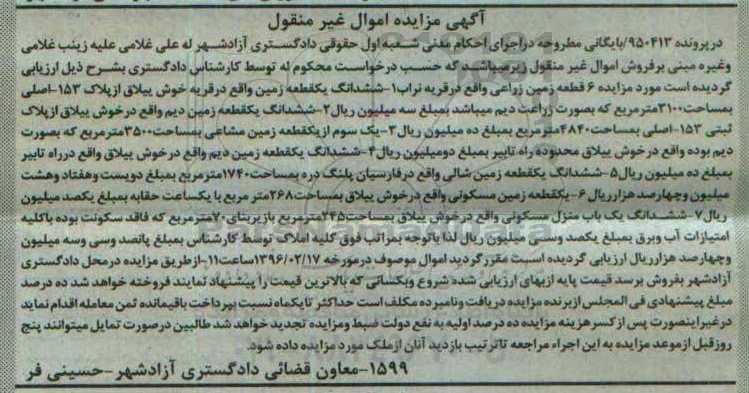 آگهی مزایده اموال غیر منقول
در پرونده ۹۵۰۴۱۳/بایگانی مطروحه دراجرای احکام مدنی شعبه اول حقوقی دادگستری آزادشهر له علی غلامی علیه زینب غلامی
وغیره مبنی برفروش اموال غیر منقول زیرمیباشد که حسب درخواست محکوم له توسط کارشناس دادگستری بشرح ذیل ارزیابی
گردیده است مورد مزایده ۶ قطعه زمین زراعی واقع درقریه تراب۱-ششدانگ یکقطعه زمین واقع درقریه خوش ییلاق ازپلاک ۱۵۳-اصلی
بمساحت۳۱۰۰مترمربع که بصورت زراعت دیم میباشد بمبلغ سه میلیون ریال۲-ششدانگ یکقطعه زمین دیم واقع درخوش ییلاق ازپلاک
ثبتی ۱۵۳-اصلی بمساحت۴۸۴۰مترمربع بمبلغ ده میلیون ریال۳-یک سوم ازیکقطعه زمین مشاعی بمساحت۳۵۰۰مترمربع که بصورت
دیم بوده واقع درخوش ییلاق محدوده راه تابیر بمبلغ دومیلیون ریال۴-ششدانگ یکقطعه زمین دیم واقع درخوش ییلاق واقع درراه تابیر
بمبلغ ده میلیون ریال۵-ششدانگ یکقطعه زمین شالی واقع درفارسیان پلنگ دره بمساحت۱۷۴۰مترمربع بمبلغ دویست وهفتاد وهشت
میلیون وچهارصد هزارریال ۶-یکقطعه زمین مسکونی واقع درخوش ییلاق بمساحت۲۶۸متر مربع با یکساعت حقابه بمبلغ یکصد میلیون
ریال۷-ششدانگ یک باب منزل مسکونی واقع درخوش ییلاق بمساحت۲۴۵مترمربع بازیربنای۷۰مترمربع که فاقد سکونت بوده باکلیه
امتیازات آب وبرق بمبلغ یکصد وسی میلیون ریال لذا باتوجه بمراتب فوق کلیه املاک توسط کارشناس بمبلغ پانصد وسی وسه میلیون
وچهارصد هزارریال ارزیابی گردیده است مقررگردید اموال موصوف درمورخه ۱۳۹۶/۰۲/۱۷ساعت۱۱-ازطریق مزایده درمحل دادگستری
آزادشهر بفروش برسد قیمت پایه ازبهای ارزیابی شده شروع وبکسانی که بالاترین قیمت را پیشنهاد نمایند فروخته خواهد شد ده درصد
مبلغ پیشنهادی فی المجلس ازبرنده مزایده دریافت ونامبرده مکلف است حداکثر تایکماه نسبت بپرداخت باقیمانده ثمن معامله اقدام نماید
درغیراینصورت پس ازکسرهزینه مزایده ده درصد اولیه به نفع دولت ضبط ومزایده تجدید خواهد شد طالبین درصورت تمایل میتوانند پنج
روزقبل ازموعد مزایده به این اجراء مراجعه تاترتیب بازدید آنان ازملک مورد مزایده داده شود.
۱۵۹۹-معاون قضائی دادگستری آزادشهر-حسینی فر